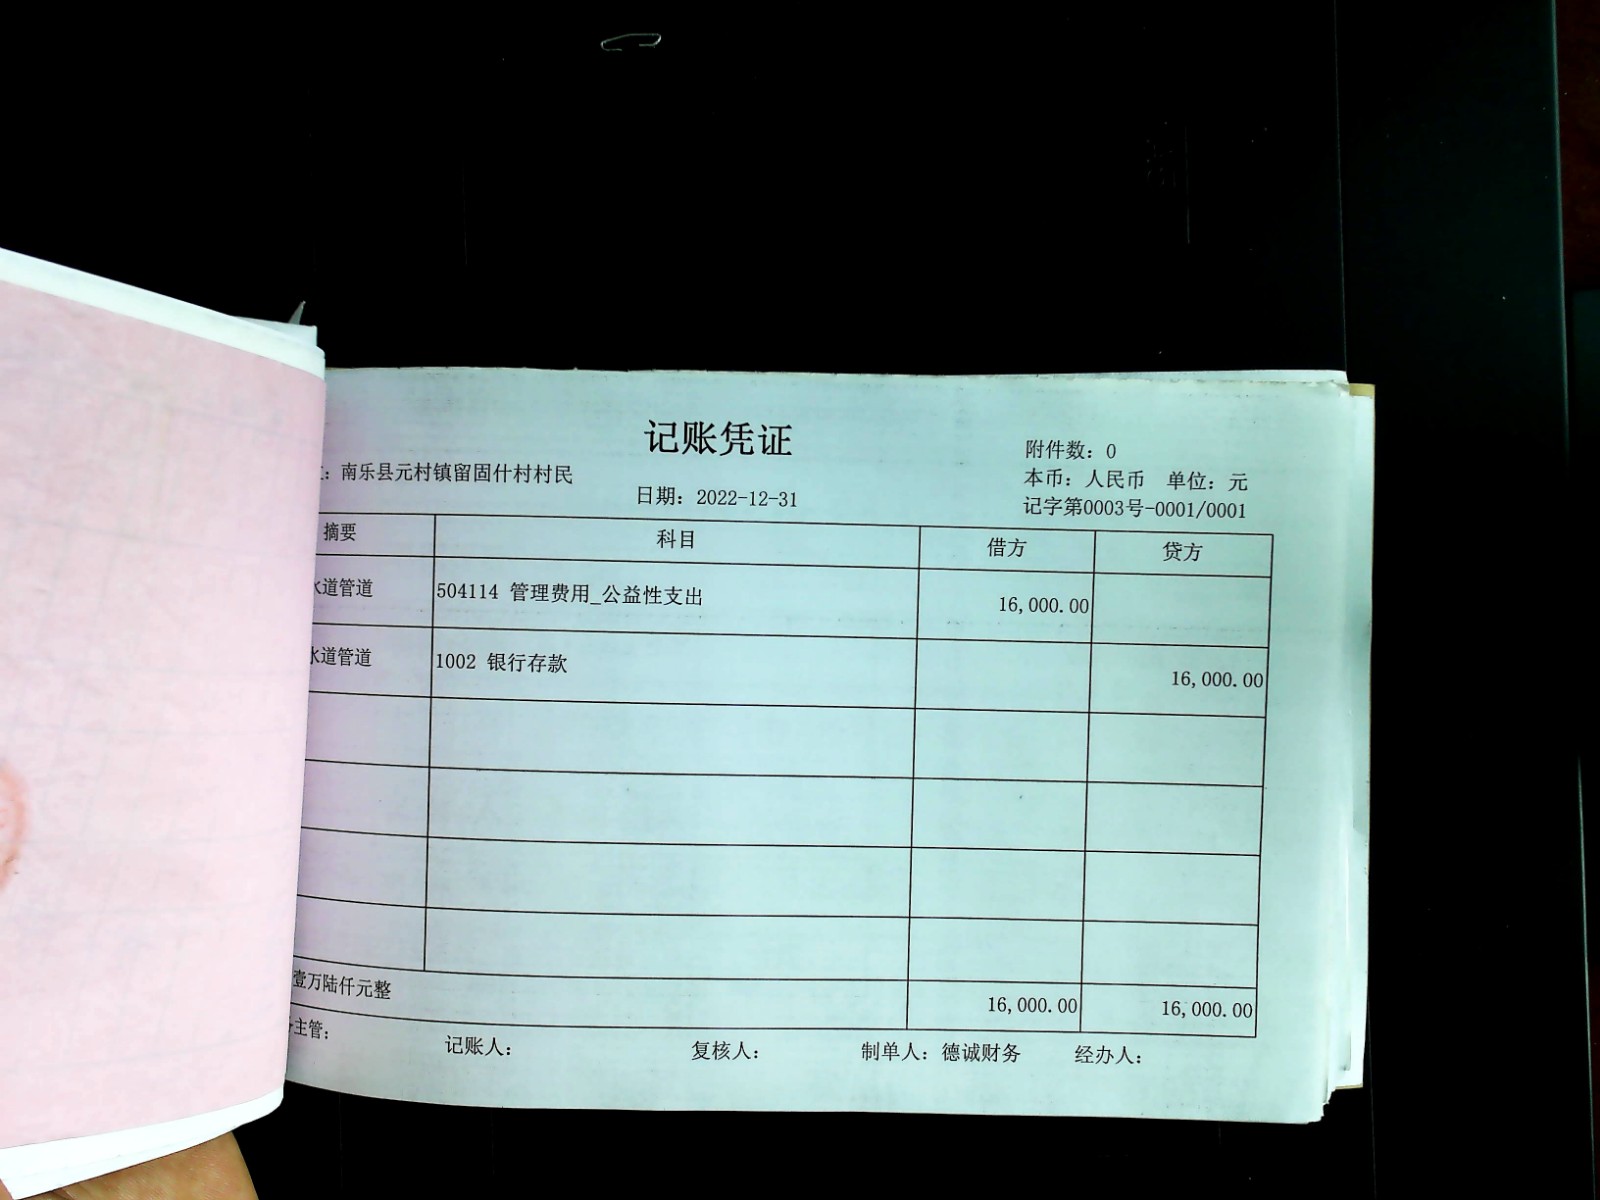 记账凭证
附件数：0
：南乐县元村镇留固什村村民
本币：人民币 单位：元
日期：2022-12-31
记字第0003号-0001/0001
摘要 科目 借方 贷方
水道管道 504114 管理费用_公益性支出 16,000.00
水道管道 1002 银行存款 16,000.00
壹万陆仟元整 16,000.00 16,000.00
主管： 记账人： 复核人： 制单人：德诚财务 经办人：